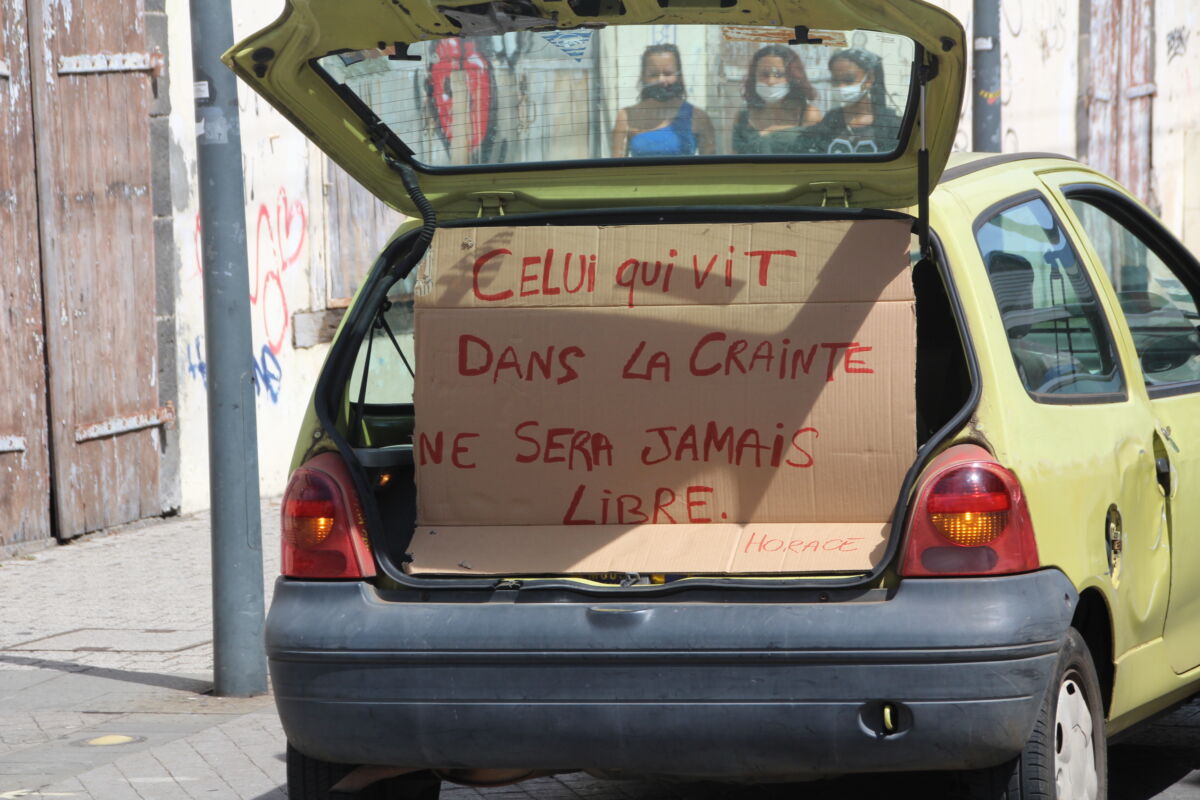 CELUi qui ViT
DANS LA CRAiNTE
NE SERA JAMAiS
LiBRE.
HORACE